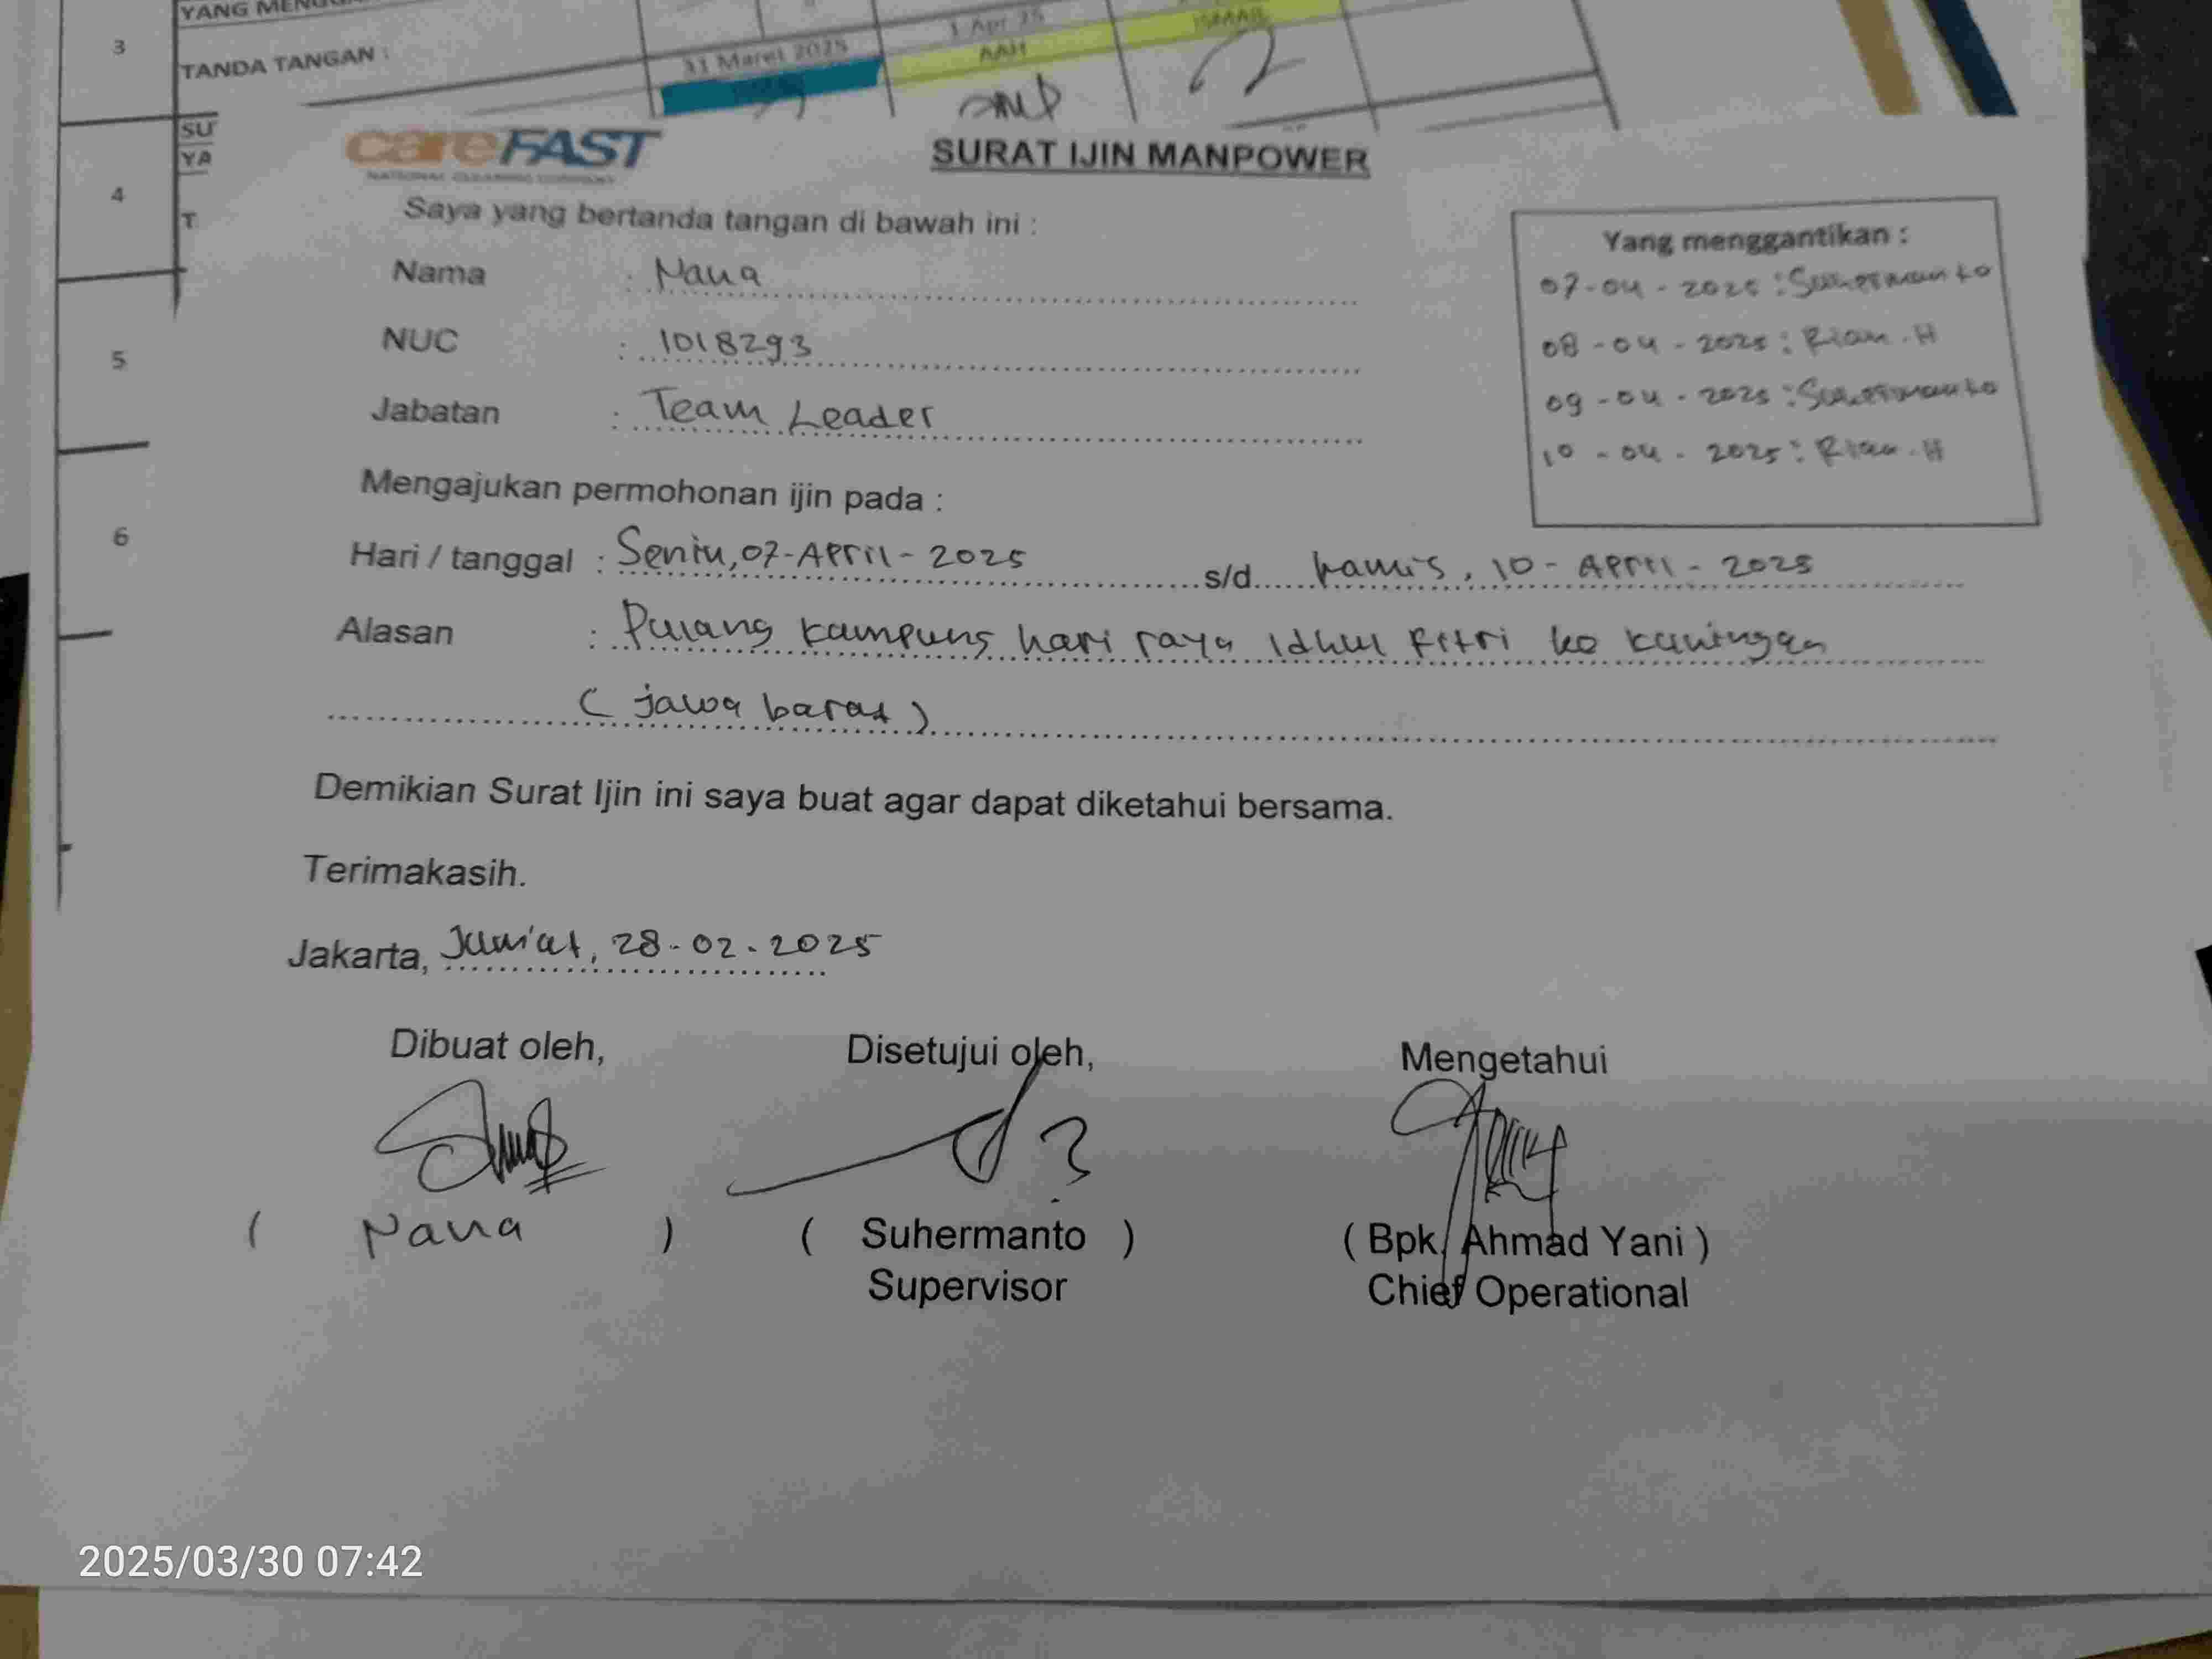 3
TANDA TANGAN :
31 Maret 2025
1 Apr 25
AAH
4
SU
YA
T
5
6
careFAST
NATIONAL CLEANING COMPANY
SURAT IJIN MANPOWER
Saya yang bertanda tangan di bawah ini :
Nama : Nana
NUC : 1018293
Jabatan : Team Leader
Yang menggantikan :
07-04-2025 : Suhermanto
08-04-2025 : Rian.H
09-04-2025 : Suhermanto
10-04-2025 : Rian.H
Mengajukan permohonan ijin pada :
Hari / tanggal : Senin, 07-April-2025 s/d kamis, 10-April-2025
Alasan : Pulang kampung hari raya Idhul Fitri ke kuningan
( jawa barat )
Demikian Surat Ijin ini saya buat agar dapat diketahui bersama.
Terimakasih.
Jakarta, Jum'at, 28-02-2025
Dibuat oleh, Disetujui oleh, Mengetahui
( Nana ) ( Suhermanto ) ( Bpk. Ahmad Yani )
Supervisor Chief Operational
2025/03/30 07:42